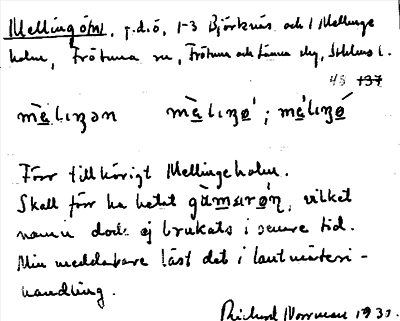 Mellingön, g.d.ö, 1-3 Björknäs och 1 Mellinge
holm, Frötuna sn, Frötuna och Länna skg, Sthlms l.
43 137
mèlıŋən mèlıŋø̀ ; mélıŋǿ
Förr tillhörigt Mellingeholm.
Skall förr ha hetat gàmarǿn, vilket
namn dock ej brukats i senare tid.
Min meddelare läst det i lantmäteri-
handling.
Richard Norrman 193